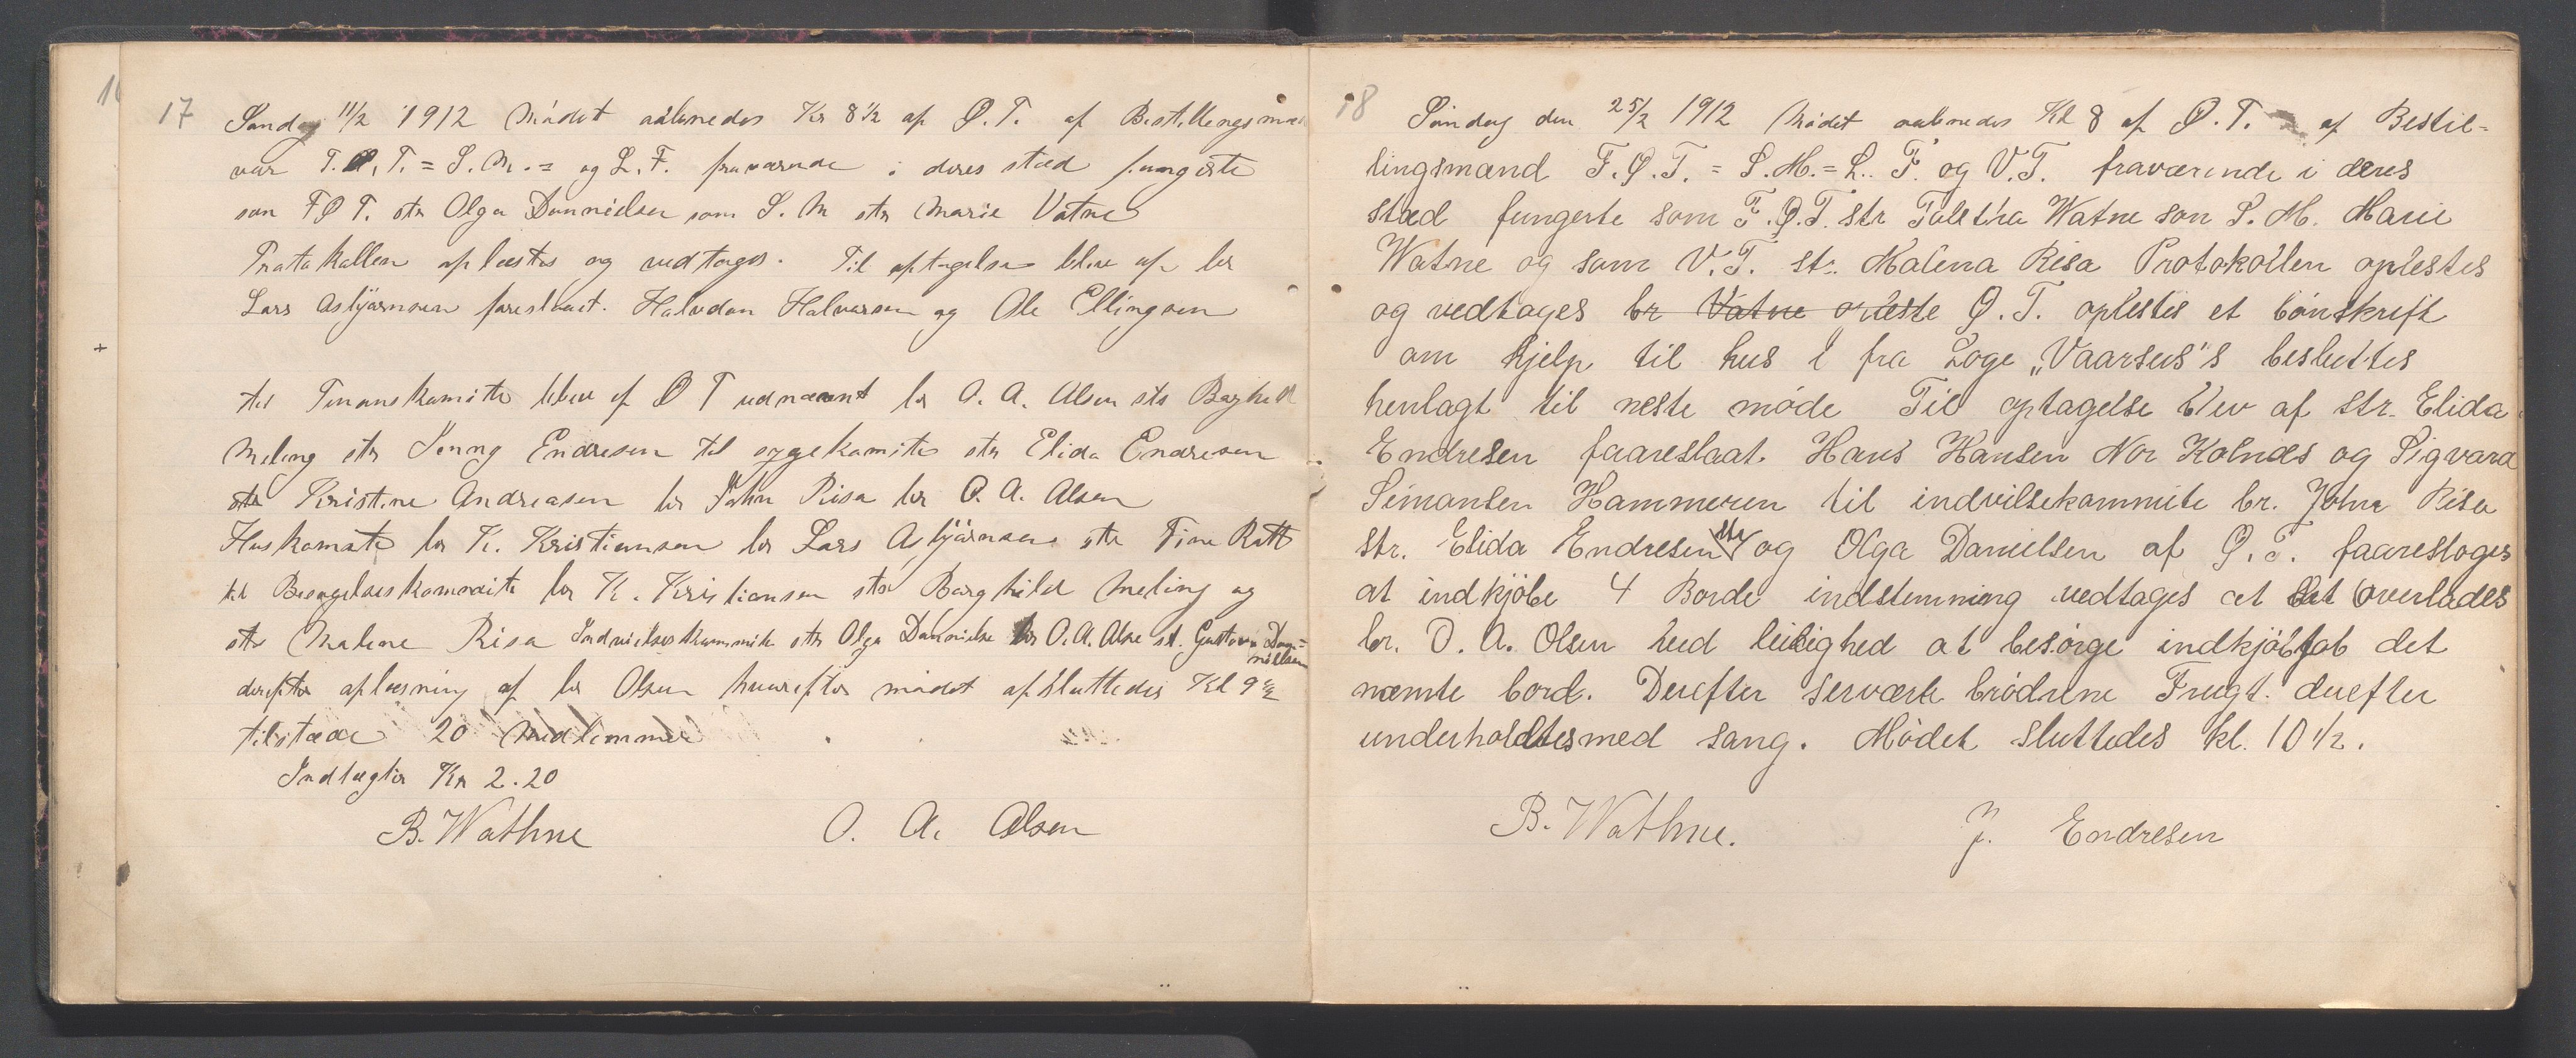 17 Søndag 11/2 1912 Mødet aabnedes Kl 8 1/2 af Ø.T. af Bestillingsmæn
var F.Ø.T. = S.M. = og L.F. fraværende i deres stæd fungerte
som FØT. str Olga Dannielsen som S.M str Marie Vatne
Protokollen oplæstes og vedtoges. Til optagelse blev af br
Lars Asbjørnsen foreslaait. Halvdan Halvorsen og Ole Ellingsen
til Finanskomite blev af ØT udnævnt br O.A. Olsen str Borghild
Meling str Jenny Endresen til sygekomite str Elida Endresen
str Kristine Andreasen br John Risa br O.A. Olsen
Huskomite br K. Kristiansen br Lars Asbjørnsen str Tine Rott
til Besøgelseskommite br K. Kristiansen str Borghild Meling og
str Malene Risa Indvielseskommite str Olga Dannielse br O.A. Olse st. Gustava Dan=
nielsen
derefter oplæsning af br Olsen hvorefter mødet afsluttedes Kl 9 1/2
tilstæde 20 Medlemmer
Indtægter Kr 2.20
B. Wathne O. A. Olsen
18 Søndag den 25/2 1912 Mødet aabnedes Kl 8 af Ø.T. af Bestil=
lingsmænd F.Ø.T. = S.M. = L.F. og V.T. fraværende i deres
stæd fungerte som F.Ø.T. str Tolena Watne som S.M. Marie
Watne og som V.T. str. Malena Risa Protokollen oplestes
og vedtages br Vatne opleste Ø.T. oplestes et bønskrift
om hjelp til hus i fra Loge „Vaarsus"s besluttes
henlagt til neste møde Til optagelse blev af str. Elida
Endresen faareslaat. Hans Hansen Nor Kolnes og Sigvard
Simonsen Hammeren til indvilsekommite br. John Risa
str. Elida Endresen str og Olga Danielsen af Ø.T. faaresloges
at indkjøbe 4 Borde indstemning vedtages at det overlades
br. O. A. Olsen ved leilighed at besørge indkjøbt det
nævnte bord. Derefter serverte brødrene Frugt. derefter
underholdtes med sang. Mødet sluttedes kl. 10 1/2.
B. Wathne. J. Endresen